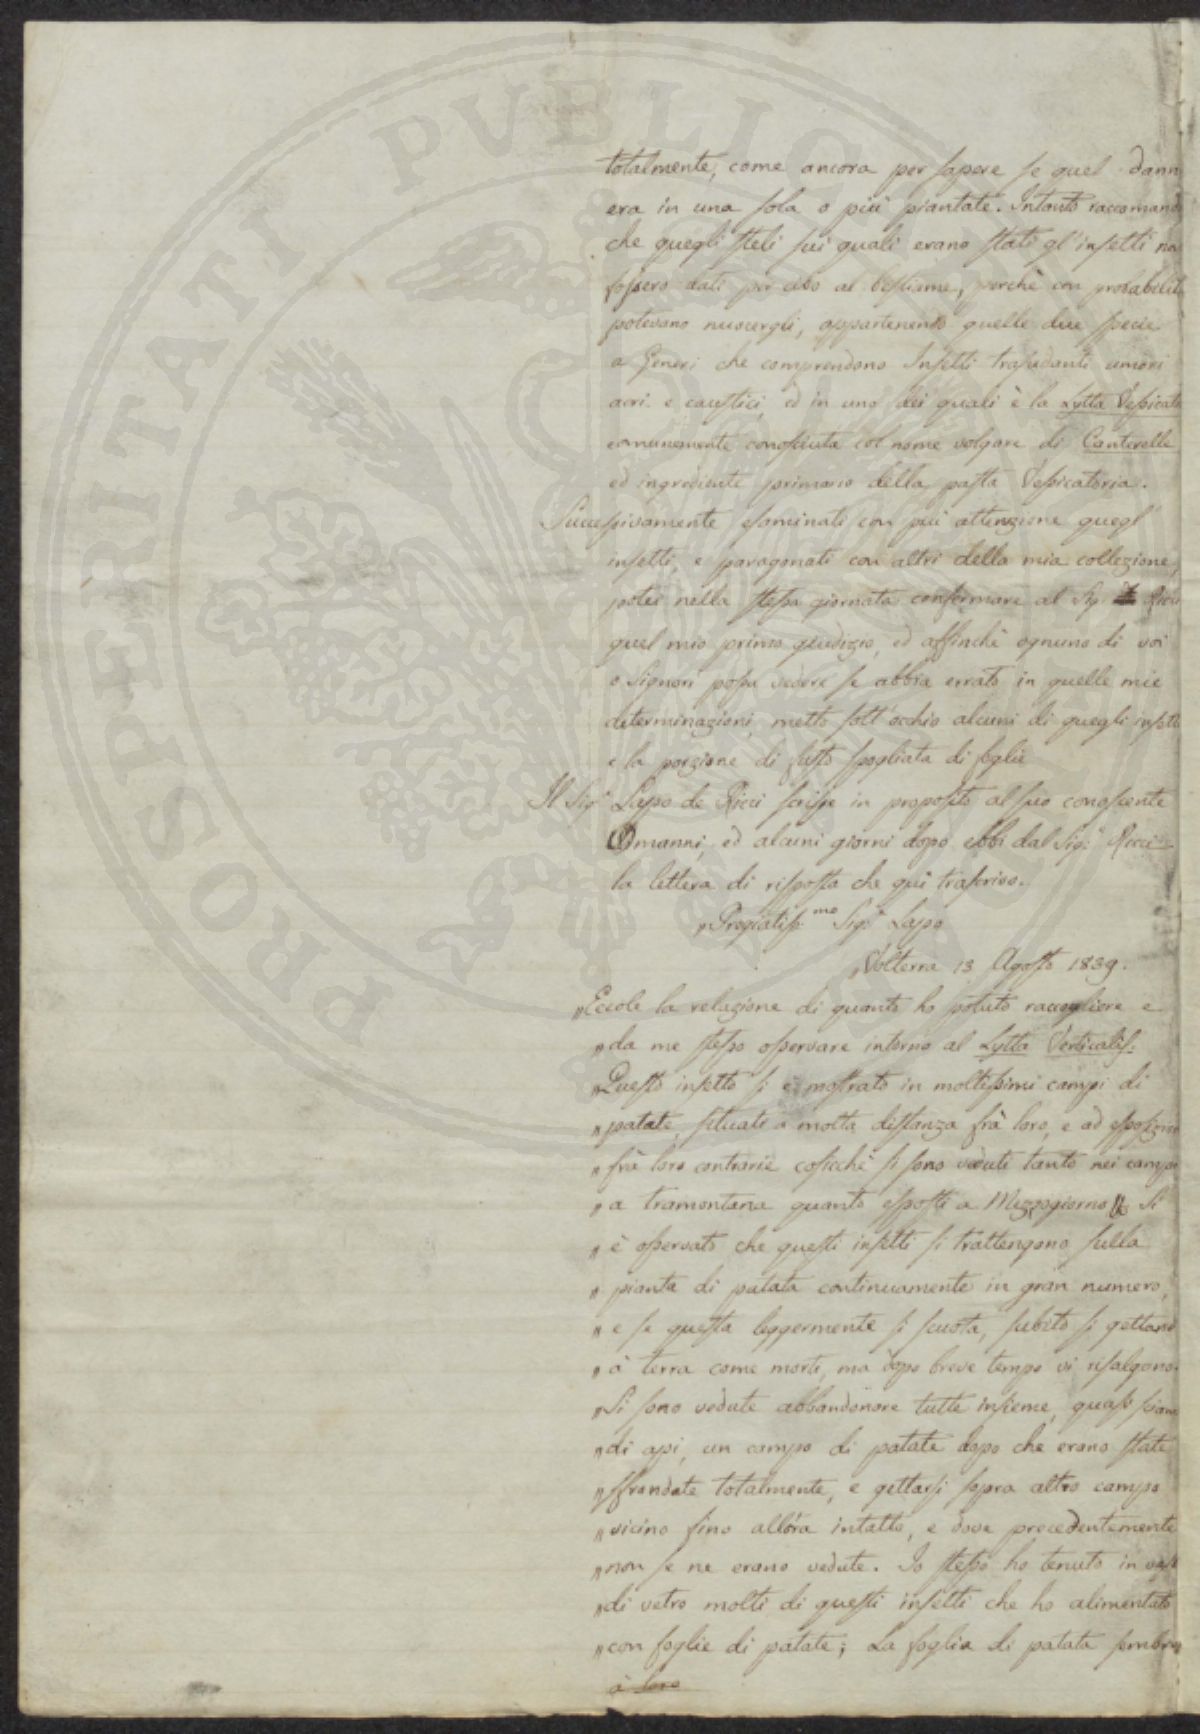 totalmente, come ancora per sapere se quel dann
era in una sola o più piantate. Intanto raccomand
che quegli steli sui quali erano stati gl'insetti no
fossero dati per cibo al bestiame, perchè con probabilit
potevano nuocergli, appartenendo quelle due specie
a Generi che comprendono Insetti trasudanti umori
acri e caustici, ed in uno dei quali è la Lytta Vessicato
comunemente conosciuta col nome volgare di Canterelle
ed ingrediente primario della pasta Vessicatoria.
Successivamente esaminati con più attenzione quegl'
insetti, e paragonati con altri della mia collezione,
potei nella stessa giornata confermare al Sig Ricci
quel mio primo giudizio, ed affinchè ognuno di voi
o Signori possa vedere se abbia errato in quelle mie
determinazioni, metto sott'occhio alcuni di quegli insetti
e la porzione di fusto spogliata di foglie
Il Sig.r Lapo de Ricci scrisse in proposito al suo conoscente
Ormanni, ed alcuni giorni dopo ebbi dal Sig.r Ricci
la lettera di risposta che quì trascrivo.
„Pregiatiss.mo Sig.r Lapo
„Volterra 13 Agosto 1839.
„Eccole la relazione di quanto ho potuto raccogliere e
„da me stesso osservare intorno al Lytta Verticalis.
„Questo insetto si è mostrato in moltissimi campi di
„patate, situati a molta distanza frà loro, e ad esposizioni
„frà loro contrarie cosicchè si sono veduti tanto nei campi
„a tramontana quanto esposti a Mezzogiorno Si
„è osservato che questi insetti si trattengono sulla
„pianta di patata continuamente in gran numero,
„e se questa leggermente si scuota, subito si gettano
„à terra come morti, ma dopo breve tempo vi risalgono.
„Si sono vedute abbandonare tutte insieme, quasi sciame
„di api, un campo di patate dopo che erano state
„sfrondate totalmente, e gettarsi sopra altro campo
„vicino fino allora intatto, e dove precedentemente
„non se ne erano vedute. Io stesso ho tenuto in vasi
„di vetro molti di questi insetti che ho alimentato
„con foglie di patate; La foglia di patata sembra
à loro
PROSPERITATI PUBLICAE